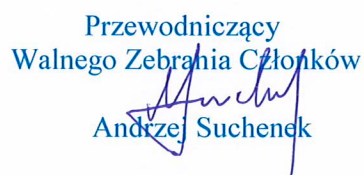 Przewodniczący
Walnego Zebrania Członków
Andrzej Suchenek